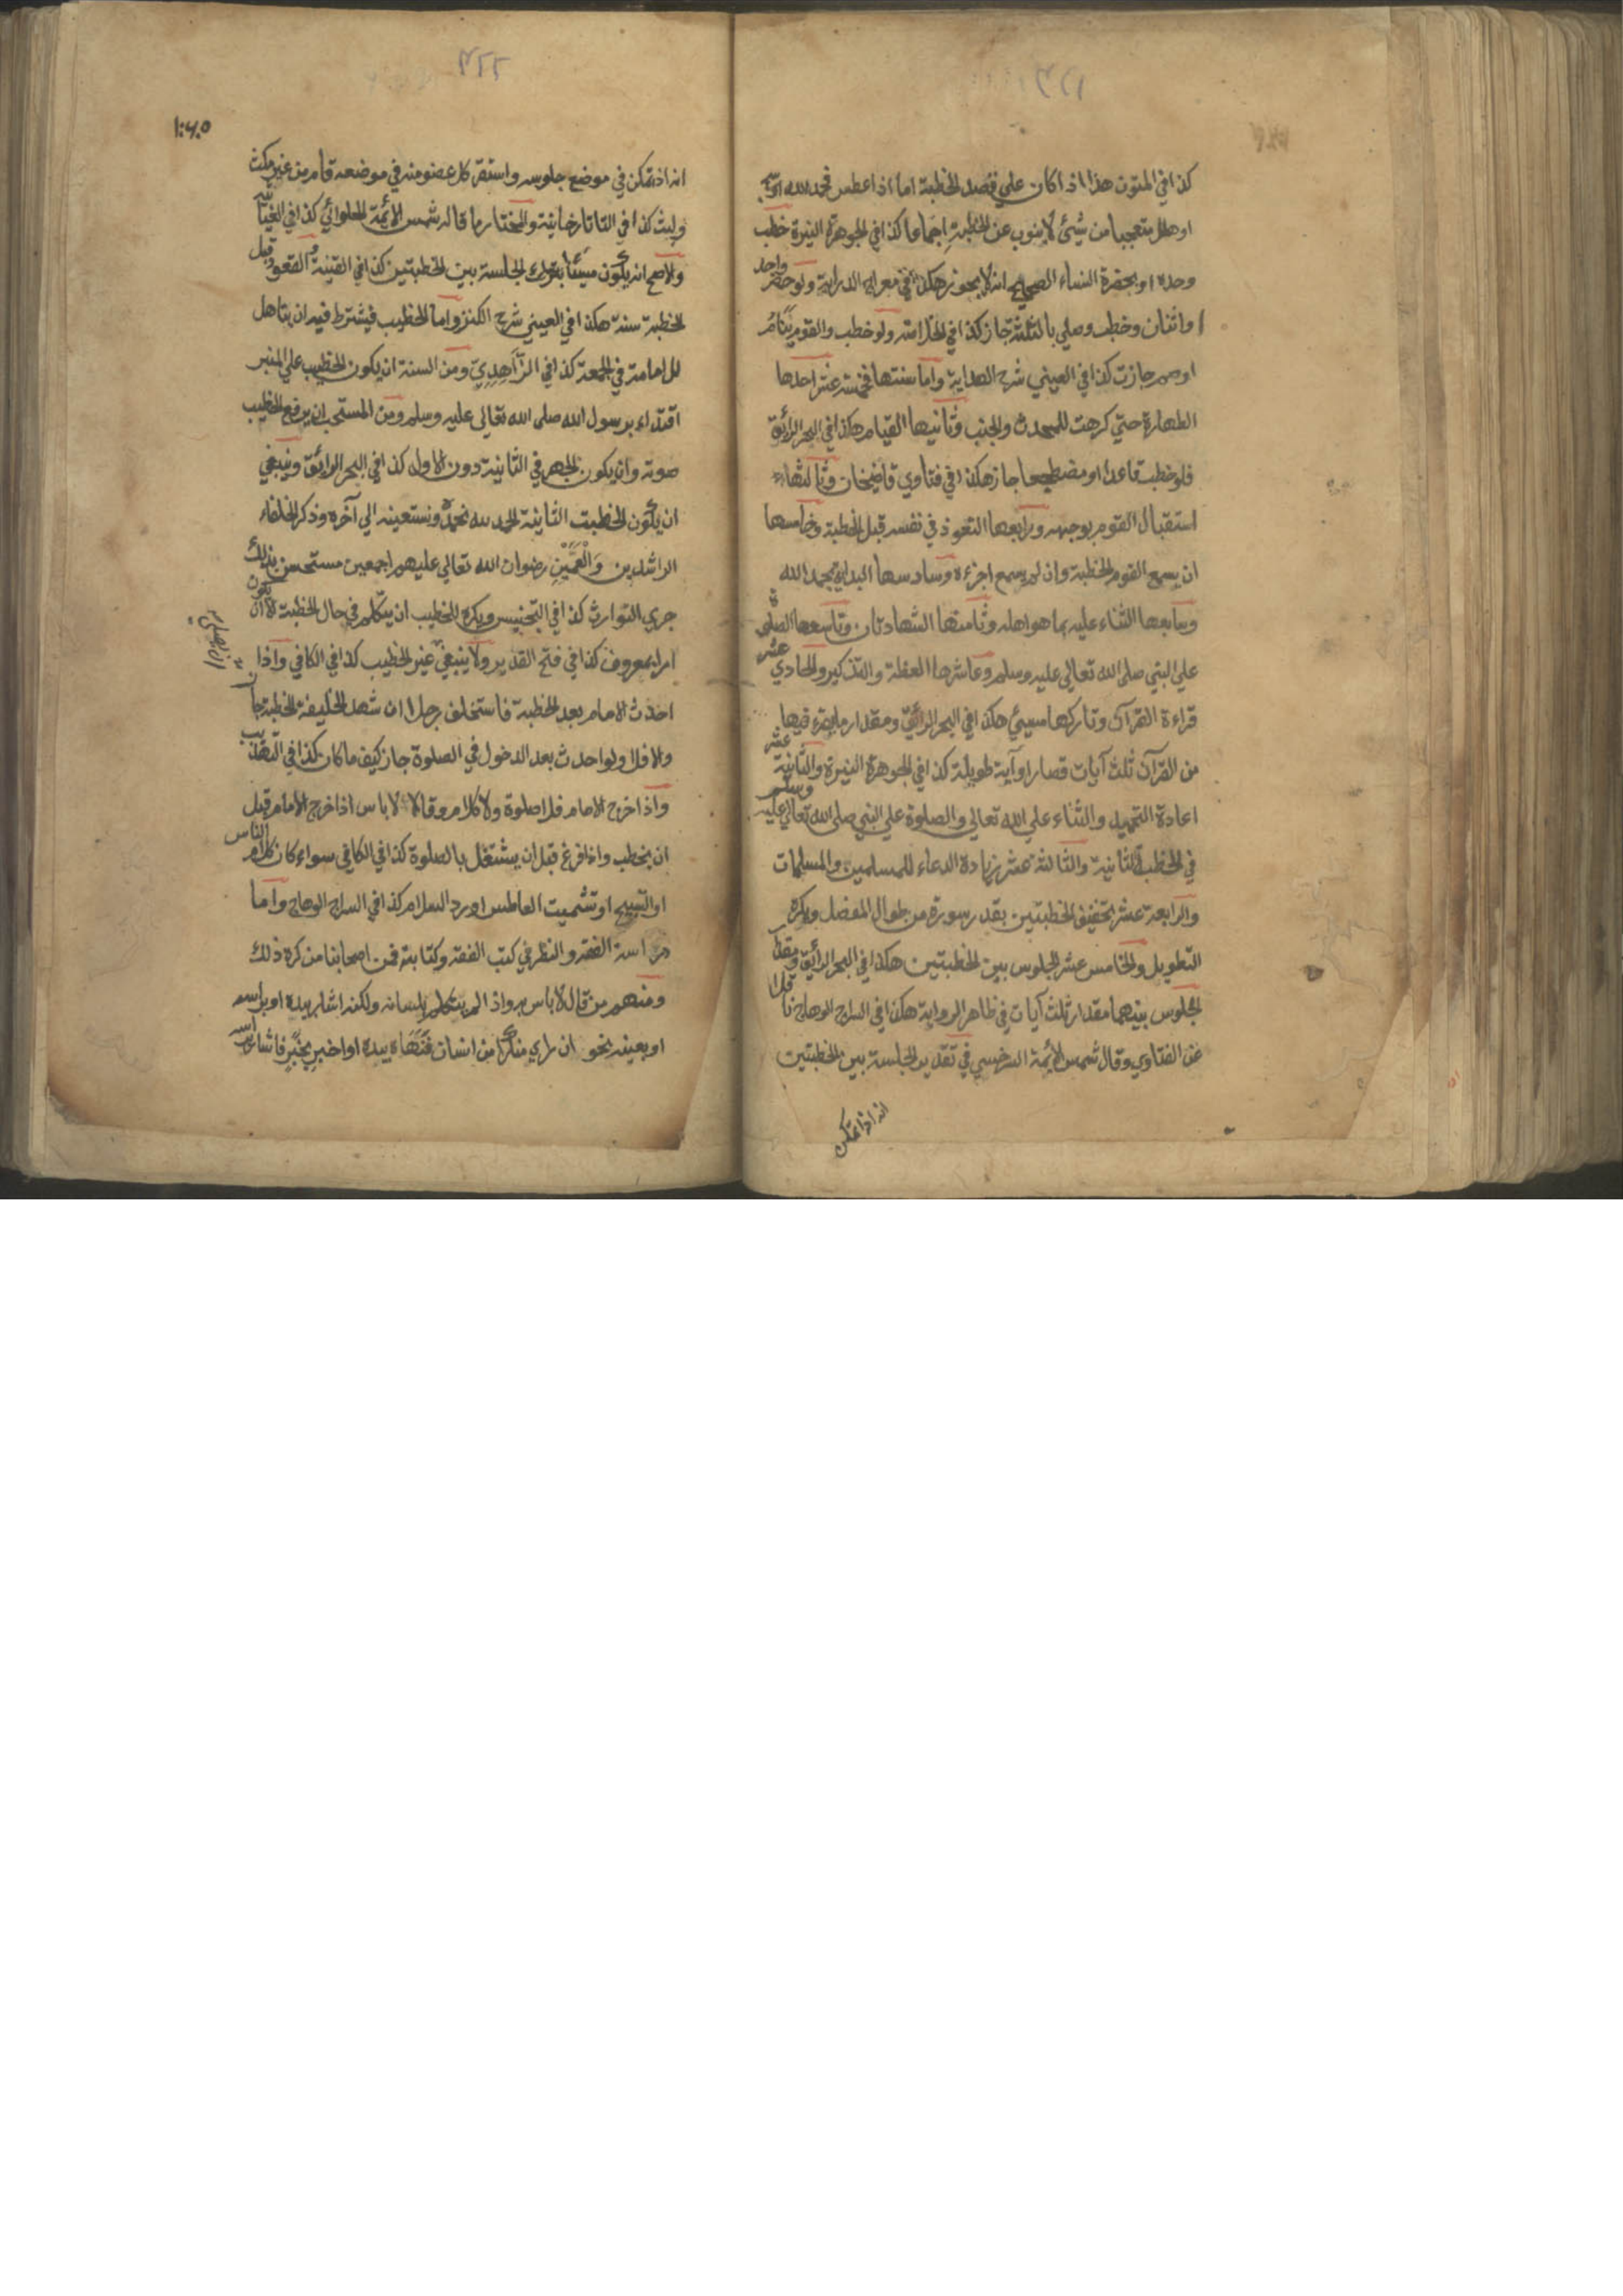 كذا في المتون هذا اذا كان علي قصد الخطبة اما اذا عطس فحمد الله او سبح
او هلل متعجبا من شيئ لا ينوب عن الخطبة اجماعا كذا في الجوهرة النيرة خطب
وحده او بحضرة النساء الصحيح انه لا يجوز هكذا في معراج الدراية ولو حضر واحد
او اثنان وخطب وصلي بالثلثة جاز كذا في الخلاصة ولو خطب والقوم نيام
او صم جازت كذا في العيني شرح الهداية واما سنتها فخمسة عشر احدها
الطهارة حتي كرهت للمحدث والجنب وثانيها القيام هكذا في البحر الرائق
فلو خطب قاعدا او مضطجعا جاز هكذا في فتاوي قاضيخان وثالثها
استقبال القوم بوجهه ورابعها التعوذ في نفسه قبل الخطبة وخامسها
ان يسمع القوم الخطبة وان لم يسمع اجزءه وسادسها البداية بحمد الله
وسابعها الثناء عليه بما هو اهله وثامنها الشهادتان وتاسعها الصلوة
علي النبي صلى الله تعالي عليه وسلم وعاشرها العظة والتذكير والحادي عشر
قراءة القرآن وتاركها مسيئ هكذا في البحر الرائق ومقدار ما يقرء فيها
من القرآن ثلث آيات قصار او آية طويلة كذا في الجوهرة النيرة والثانية عشر
اعادة التحميد والثناء علي الله تعالي والصلوة علي النبي صلى الله تعالي عليه وسلم
في الخطبة الثانية والثالثة عشر زيادة الدعاء للمسلمين والمسلمات
والرابعة عشر تخفيف الخطبتين بقدر سورة من طوال المفصل ويكره
التطويل والخامس عشر الجلوس بين الخطبتين هكذا في البحر الرائق ومقدار
الجلوس بينهما مقدار ثلث آيات في ظاهر الرواية هكذا في السراج الوهاج ناقلا
عن الفتاوي وقال شمس الائمة السرخسي في تقدير الجلسة بين الخطبتين
انه اذا تمكن
انه اذا تمكن في موضع جلوسه واستقر كل عضو منه في موضعه قام من غير مكث
ولبث كذا في التاتارخانية والمختار ما قاله شمس الائمة الحلوائي كذا في الغياثية
والاصح انه يكون مسيئا بترك الجلسة بين الخطبتين كذا في القنية القعود قبل
الخطبة سنة هكذا في العيني شرح الكنز واما الخطيب فيشترط فيه ان يتاهل
للامامة في الجمعة كذا في الزاهدي ومن السنة ان يكون الخطيب علي المنبر
اقتداء برسول الله صلى الله تعالي عليه وسلم ومن المستحب ان يرفع الخطيب
صوته وان يكون الجهر في الثانية دون الاول كذا في البحر الرائق وينبغي
ان يكون الخطبت الثانية الحمد لله نحمده ونستعينه الي آخره وذكر الخلفاء
الراشدين والعمين رضوان الله تعالي عليهم اجمعين مستحسن بذلك
جري التوارث كذا في التجنيس ويكره للخطيب ان يتكلم في حال الخطبة الا ان يكون
امرا بمعروف كذا في فتح القدير ولا ينبغي غير الخطيب كذا في الكافي واذا
احدث الامام بعد الخطبة فاستخلف رجلا ان شهد الخليفة الخطبة جاز
والا فلا ولو احدث بعد الدخول في الصلوة جاز كيف ما كان كذا في التهذيب
واذا خرج الامام فلا صلوة ولا كلام وقالا لا باس اذا خرج الامام قبل
ان يخطب واذا فرغ قبل ان يشتغل بالصلوة كذا في الكافي سواء كان كلام الناس
او التسبيح او تشميت العاطس او رد السلام كذا في السراج الوهاج واما
دراسة الفقه والنظر في كتب الفقه وكتابته فمن اصحابنا من كره ذلك
ومنهم من قال لا باس به واذا لم يتكلم بلسانه ولكنه اشار بيده او براسه
او بعينه نحو ان راي منكرا من انسان فنهاه بيده او اخبر بخبر فاشار براسه